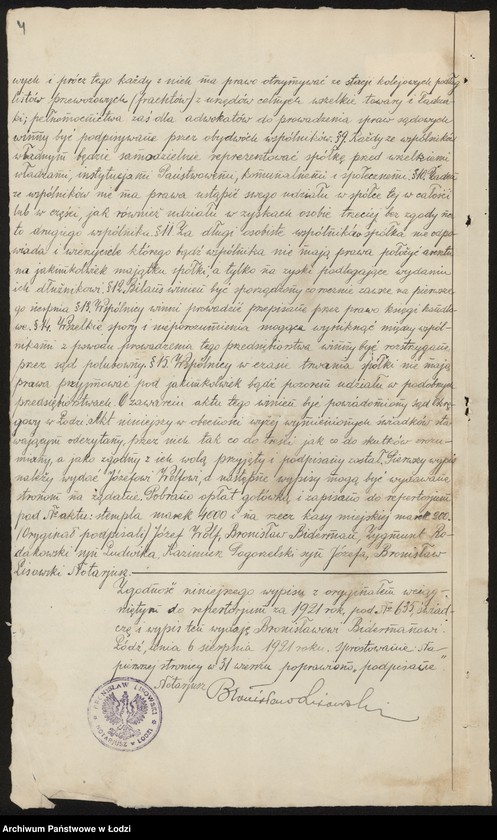 4
wych i prócz tego każdy z nich ma prawo otrzymywać ze stacji kolejowych podług
listów przewozowych (frachtów) z urzędów celnych wszelkie towary i ładun-
ki; pełnomocnictwa zaś dla adwokatów do prowadzenia spraw sądowych
winny być podpisywane przez obydwóch wspólników. §9. Każdy ze wspólników
władnym będzie samodzielnie reprezentować spółkę przed wszelkiemi
władzami, instytucjami Państwowemi, komunalnemi i społecznemi. §10. Żaden
ze wspólników nie ma prawa ustąpić swego udziału w spółce tej w całości
lub w części, jak również udziału w zyskach osobie trzeciej bez zgody na
to drugiego wspólnika. §11. Za długi osobiste wspólników spółka nie odpo-
wiada i wierzyciele którego bądź wspólnika nie mają prawa położyć aresztu
na jakimkolwiek majątku spółki, a tylko na zyski podlegające wydaniu
ich dłużnikowi. §12. Bilans winien być sporządzony corocznie zawsze na pierwsze-
go sierpnia. §13. Wspólnicy winni prowadzić przepisane przez prawo księgi handlo-
we. §14. Wszelkie spory i nieporozumienia mogące wyniknąć między wspól-
nikami z powodu prowadzenia tego przedsiębiorstwa winny być rozstrzygane
przez sąd polubowny. §15. Wspólnicy w czasie trwania spółki nie mają
prawa przyjmować pod jakimkolwiek bądź pozorem udziału w podobnem
przedsiębiorstwach. O zawarciu aktu tego winien być powiadomiony Sąd Okrę-
gowy w Łodzi. Akt niniejszy w obecności wyżej wymienionych świadków sta-
wającym odczytany, przez nich tak co do treści jak co do skutków zrozu-
miany, a jako zgodny z ich wolą przyjęty i podpisany został. Pierwszy wypis
należy wydać Józefowi Wolfowi, a następne wypisy mogą być wydawane
stronom na żądanie. Pobrano opłat gotówką i zapisano do repertorjum
pod № aktu: stempla marek 4000 i na rzecz kasy miejskiej marek 200.
/Oryginał podpisali/ Józef Wolf, Bronisław Biderman, Zygmunt Ro-
dakowski syn Ludwika, Kazimierz Pogonelski syn Józefa, Bronisław
Lisowski Notarjusz.
Zgodność niniejszego wypisu z oryginałem wciąg-
niętym do repertorjum za 1921 rok, pod № 635, świad-
czę i wypis ten wydaję Bronisławowi Bidermanowi.
Łódź, dnia 6 sierpnia 1921 roku. Sprostowanie: "Na
pierwszej stronicy w 31 wierszu poprawiono, podpisanie"
Notarjusz Bronisław Lisowski
BRONISŁAW LISOWSKI
NOTARJUSZ w ŁODZI
Archiwum Państwowe w Łodzi